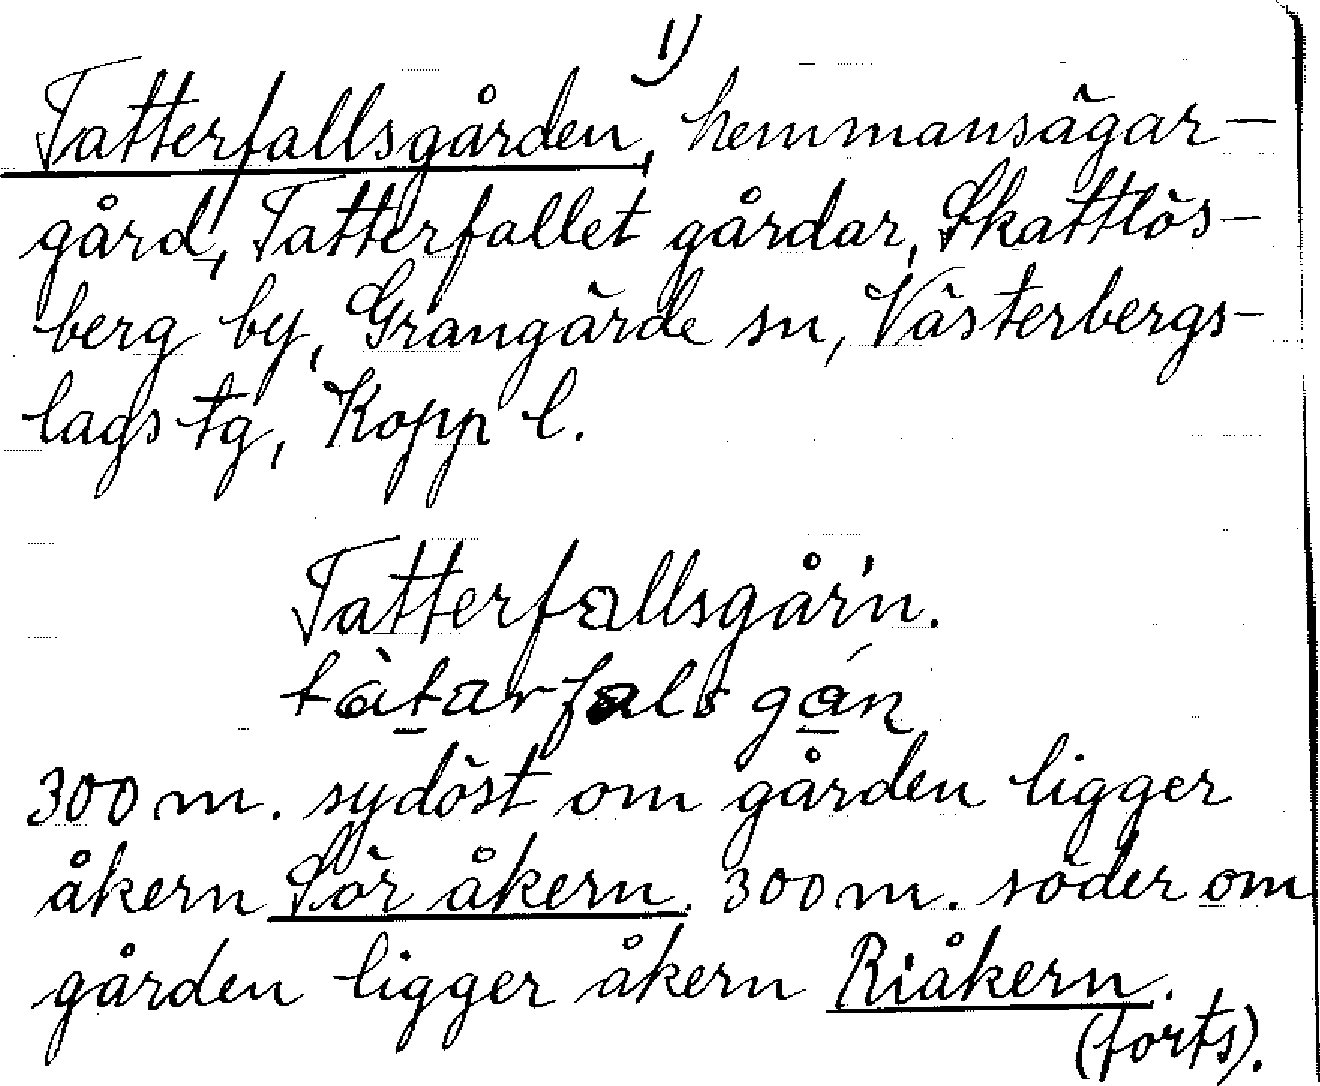 1)
Tatterfallsgården, hemmansägar-
gård, Tatterfallet gårdar, Skattlös-
berg by, Grangärde sn, Västerbergs-
lags tg, Kopp l.
Tatterfallsgår'n.
300 m. sydöst om gården ligger
åkern Sör åkern. 300 m. söder om
gården ligger åkern Riåkern.
(forts).